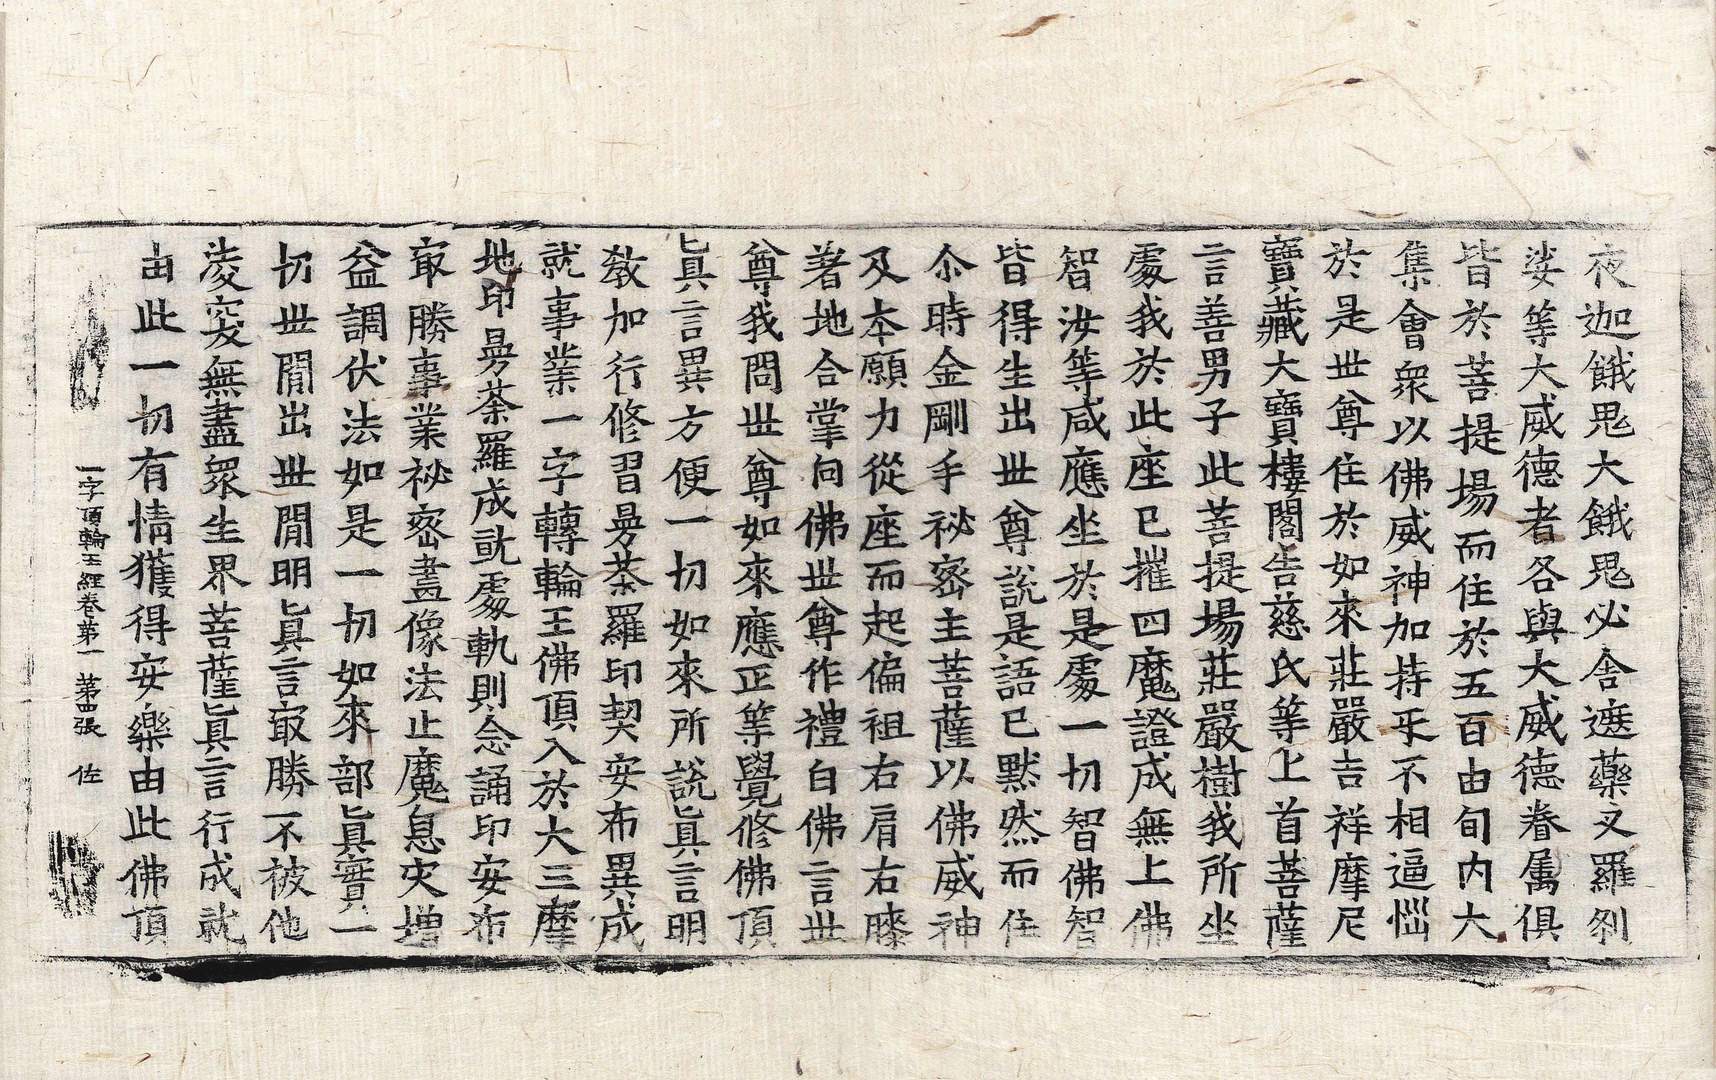 夜迦餓鬼大餓鬼必舍遮藥叉羅刹
娑等大威德者各與大威德眷属俱
皆於菩提場而住於五百由旬内大
集會衆以佛威神加持㸦不相逼惱
於是世尊住於如來莊嚴吉祥摩尼
寶藏大寶樓閣告慈氏等上首菩薩
言善男子此菩提場莊嚴樹我所坐
處我於此座已摧四魔證成無上佛
智汝等咸應坐於是處一切智佛智
皆得生出世尊說是語已默然而住
尒時金剛手祕密主菩薩以佛威神
及本願力從座而起偏袒右肩右膝
著地合掌向佛世尊作禮白佛言世
尊我問世尊如來應正等覺修佛頂
眞言異方便一切如來所說眞言明
教加行修習曼荼羅印契安布異成
就事業一字轉輪王佛頂入於大三摩
地印曼荼羅成就處軌則念誦印安布
㝡勝事業祕密畫像法止魔息灾增
益調伏法如是一切如來部眞實一
切世閒出世閒明眞言㝡勝不被他
淩突無盡衆生界菩薩眞言行成就
由此一切有情獲得安樂由此佛頂
一字頂輪王經卷第一 第四張 佐